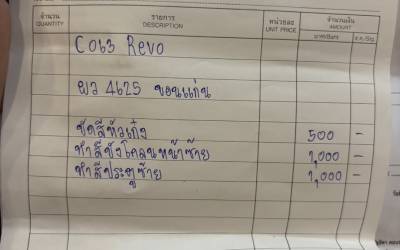 จำนวน รายการ หน่วยละ จำนวนเงิน
QUANTITY DESCRIPTION UNIT PRICE AMOUNT
บาท/Baht ส.ต./Stg.
Co63 Revo
ผว 4625 ขอนแก่น
ขัดสีหัวเก๋ง 500 -
ทำสีบังโคลนหน้าซ้าย 1,000 -
ทำสีประตูซ้าย 1,000 -